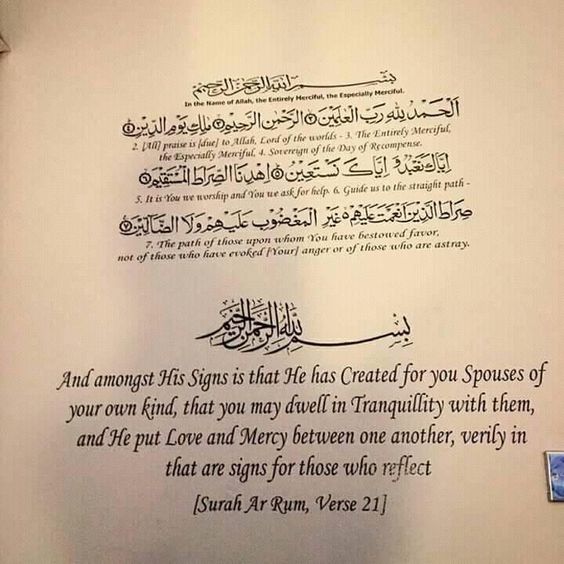 بسم الله الرحمن الرحيم
In the Name of Allah, the Entirely Merciful, the Especially Merciful.
اَلْحَمْدُ لِلّٰهِ رَبِّ الْعٰلَمِيْنَ ۝٢ الرَّحْمٰنِ الرَّحِيْمِ ۝٣ مٰلِكِ يَوْمِ الدِّيْنِ ۝٤
2. [All] praise is [due] to Allah, Lord of the worlds - 3. The Entirely Merciful,
the Especially Merciful, 4. Sovereign of the Day of Recompense.
اِيَّاكَ نَعْبُدُ وَ اِيَّاكَ نَسْتَعِيْنُ ۝٥ اِهْدِنَا الصِّرَاطَ الْمُسْتَقِيْمَ ۝٦
5. It is You we worship and You we ask for help. 6. Guide us to the straight path -
صِرَاطَ الَّذِيْنَ اَنْعَمْتَ عَلَيْهِمْ ۵ غَيْرِ الْمَغْضُوْبِ عَلَيْهِمْ وَلَا الضَّآلِّيْنَ ۝٧
7. The path of those upon whom You have bestowed favor,
not of those who have evoked [Your] anger or of those who are astray.
بسم الله الرحمن الرحيم
And amongst His Signs is that He has Created for you Spouses of
your own kind, that you may dwell in Tranquillity with them,
and He put Love and Mercy between one another, verily in
that are signs for those who reflect
[Surah Ar Rum, Verse 21]